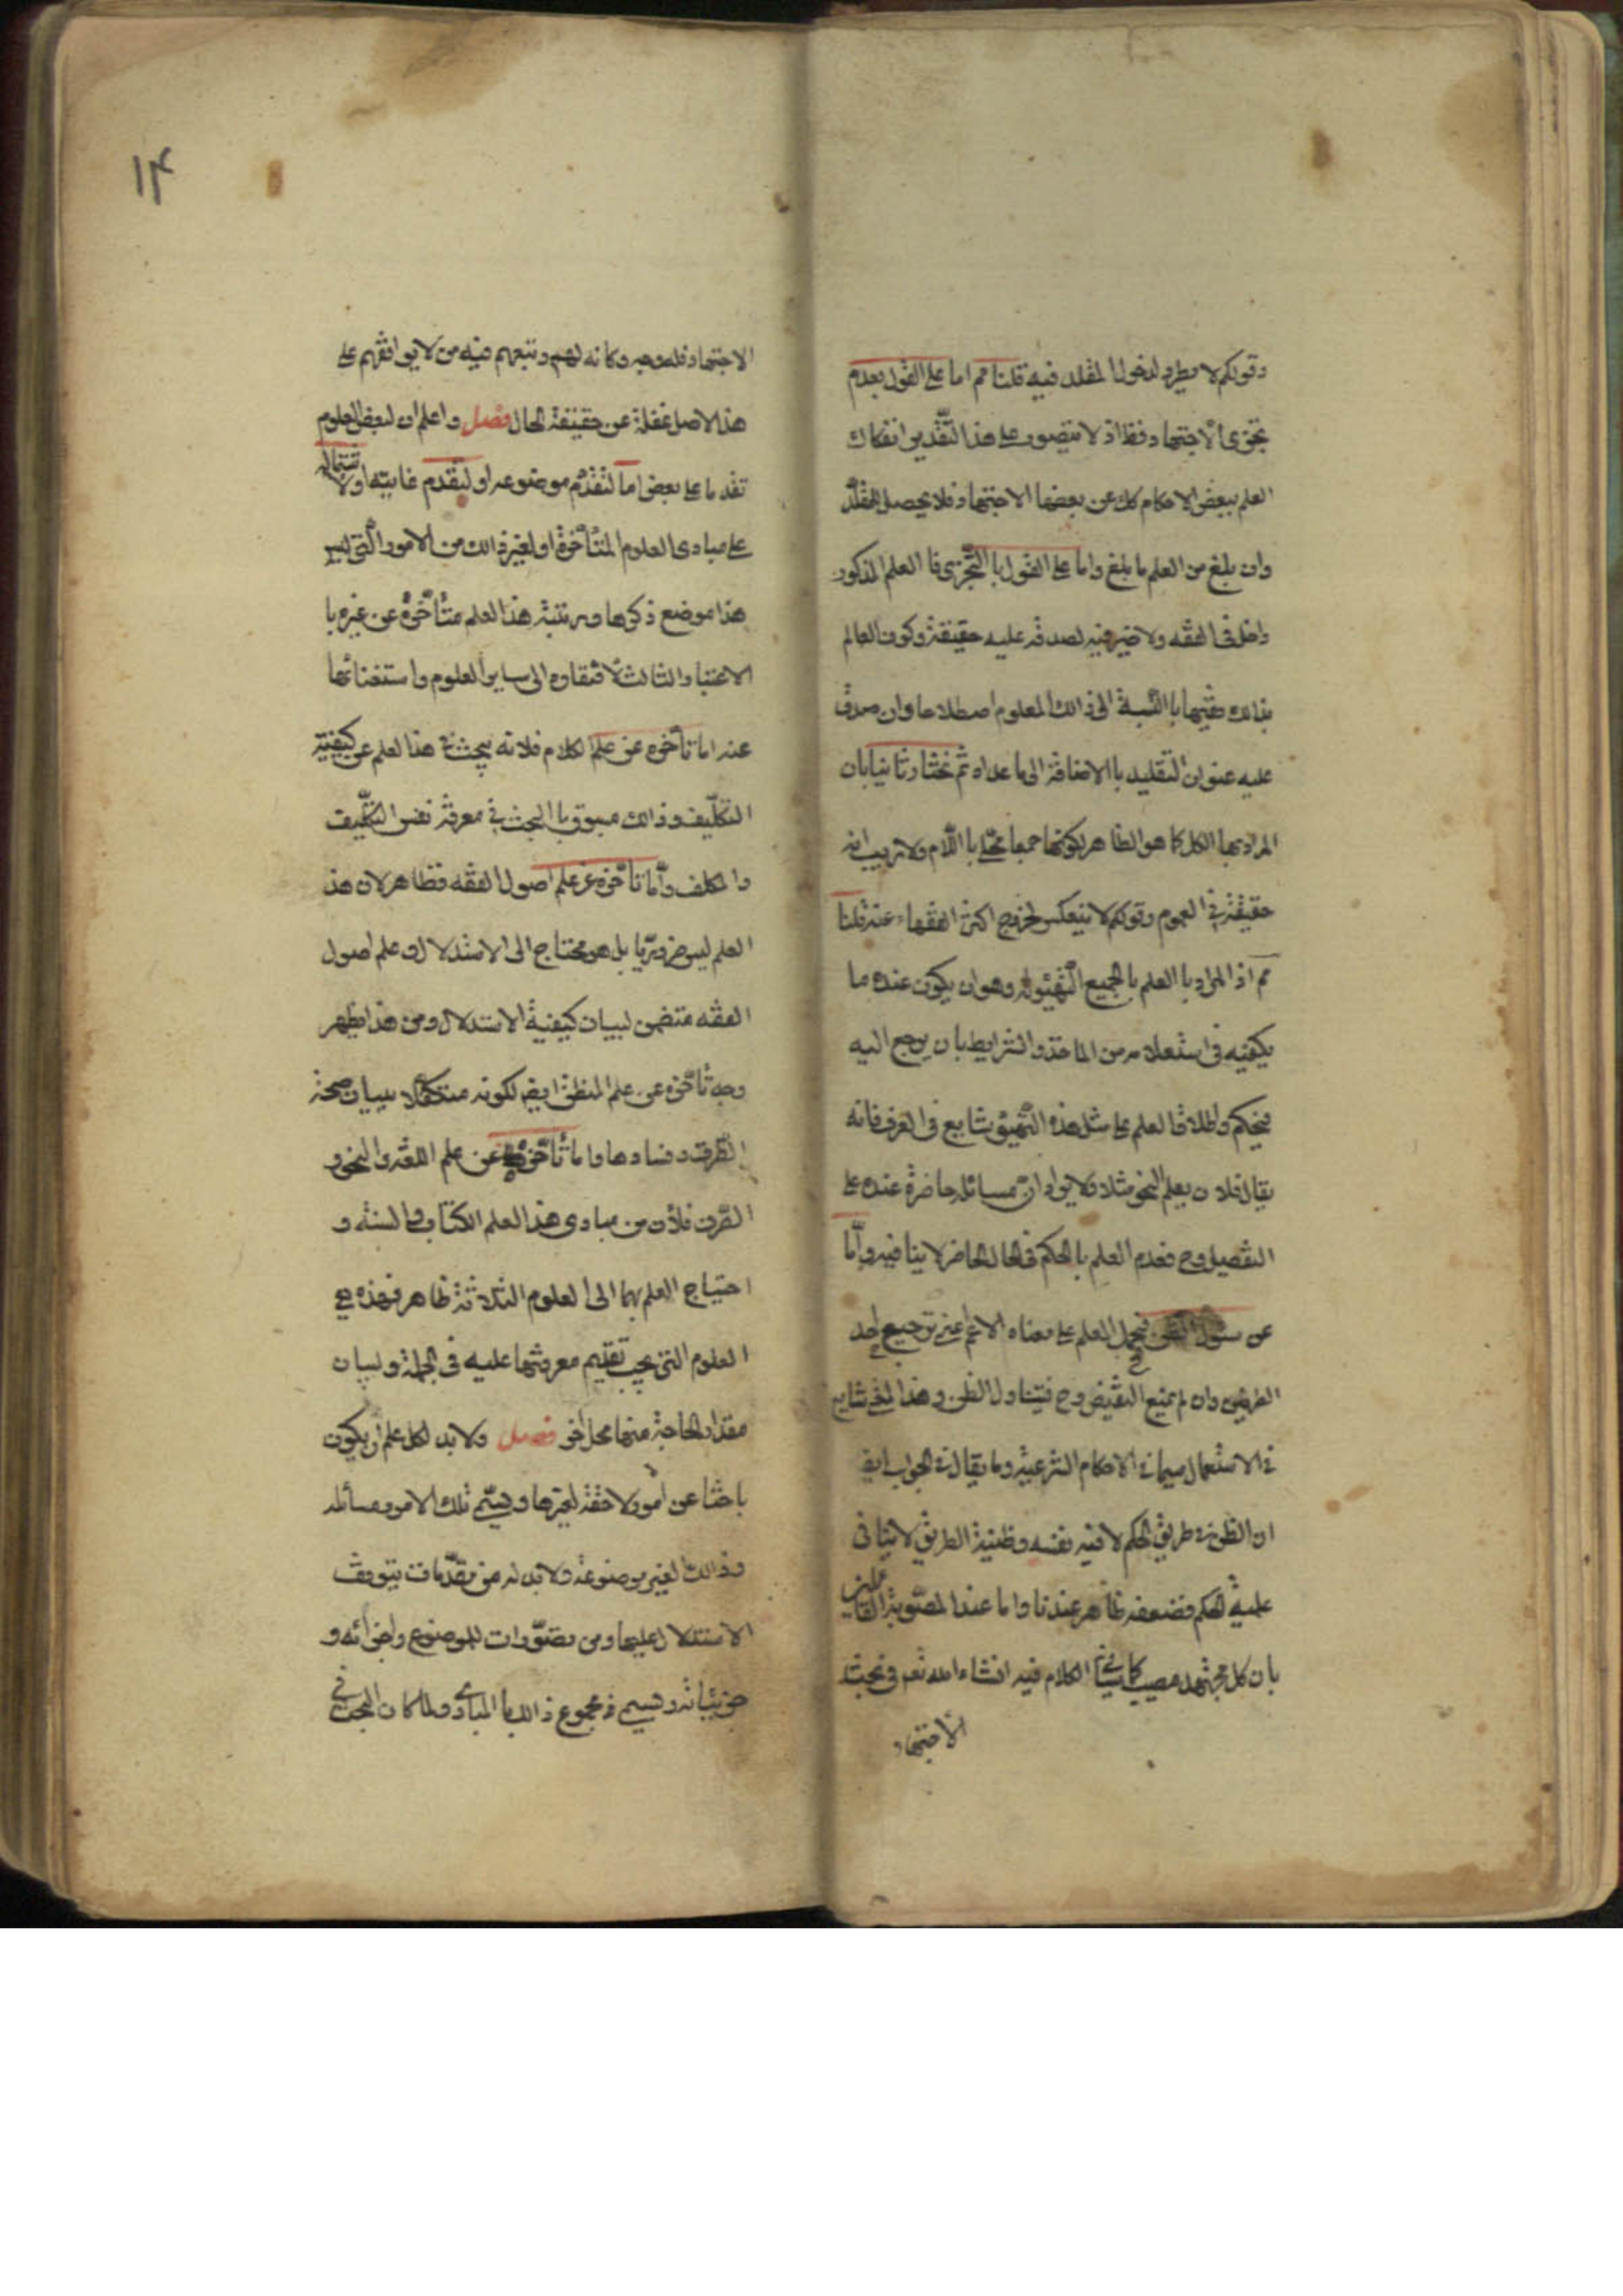 وقولكم لا يطرد لدخول المقلد فيه قلنا مم اما على القول بعدم
تجزى الاجتهاد فظ اذ لا يتصور على هذا التّقدير انفكاك
العلم ببعض الاحكام كك عن بعضها الاجتهاد فلا يحصل للمقلّد
وان بلغ من العلم ما بلغ واما على القول با التّجزى فا العلم المذكور
داخل فى الفقه ولا ضير فيه لصدقه عليه حقيقة وكون العالم
بذالك فقيها با النّسبة الى ذالك المعلوم اصطلاحا وان صدق
عليه عنوان التقليد با الاضافة الى ما عداه ثم نختار ثانيا بان
المراد بها الكل كما هو الظاهر لكونها جمعا محلّى با اللّام ولا ريب انه
حقيقة فى العموم وقولكم لا ينعكس لخروج اكثر الفقهاء عنه قلنا
مم اذ المراد با العلم با الجميع التّهيّؤ له وهو ان يكون عنده ما
يكفيه فى استعلامه من الماخذ والشرايط بان يرجع اليه
فيحكم واطلاق العلم على مثل هذه التّهيّؤ شايع فى العرف فانه
يقال فلان يعلم النحو مثلا ولا يراد ان مسائله حاضرة عنده على
التفصيل وح فعدم العلم با الحكم فى الحال الحاضر لا ينافيه وامّا
عن سئوال الظن فيحمل العلم على معناه الاعم اعنى ترجيح احد
الطرفين وان لم يمنع النقيض وح فيتناول الظن وهذا المعنى شايع
فى الاستعمال سيما فى الاحكام الشرعية وما يقال فى الجواب ايض
ان الظن فى طريق الحكم لا فيه نفسه وظنية الطريق لا ينافى
علمية الحكم فضعفه ظاهر عندنا واما عند المصّوبة القائلين
بان كل مجتهد مصيب كما سيأتى الكلام فيه انشاء الله تعم فى بحث
الاجتهاد
۱۴
الاجتهاد فله وجه وكانه لهم وتبعهم فيه من لا يوافقهم على
هذا الاصل غفلة عن حقيقة الحال فصل واعلم ان لبعض العلوم
تقدما على بعض اما لتقدّم موضوعه او لتقدم غايته او لاشتماله
على مبادى العلوم المتأخرة او لغير ذالك من الامور الّتى ليس
هذا موضع ذكرها ومرتبة هذا العلم متأخّرة عن غيره با
الاعتبار الثالث لافتقاره الى ساير العلوم واستغنائها
عنه اما تأخره عن علم الكلام فلانه يبحث فى هذا لعلم عن كيفية
التكلّيف وذالك مسبوق با البحث فى معرفة نفس التكليف
والمكلف وأمّا تأخّره عن علم اصول الفقه فظاهر لان هذ
العلم ليس ضروريّا بل هو محتاج الى الاستدلال وعلم اصول
الفقه متضمن لبيان كيفية الاستدلال ومن هذا يظهر
وجه تأخّره عن علم المنطق ايض لكونه متكفّلا ببيان صحة
الطّرق وفسادها واما تأخّره عن علم اللغة والنحو و
الصّرف فلأن من مبادى هذا العلم الكتاب والسنة و
احتياج العلم بهما الى العلوم الثلاثة ظاهر فهذه هى
العلوم التى يجب تقديم معرفتها عليه فى الجملة ولبيان
مقدار الحاجة منها محل اخر فصل ولا بد لكل علم ان يكون
باحثا عن امور لاحقة لغيرها ويسّمى تلك الامور مسائله
وذالك لغير موضوعة ولا بد له من مقدّمات يتوقف
الاستدلال عليها ومن تصوّرات للموضوع واجزائه و
جزئياته ويسمى مجموع ذالك با المبادى ولما كان البحث فى